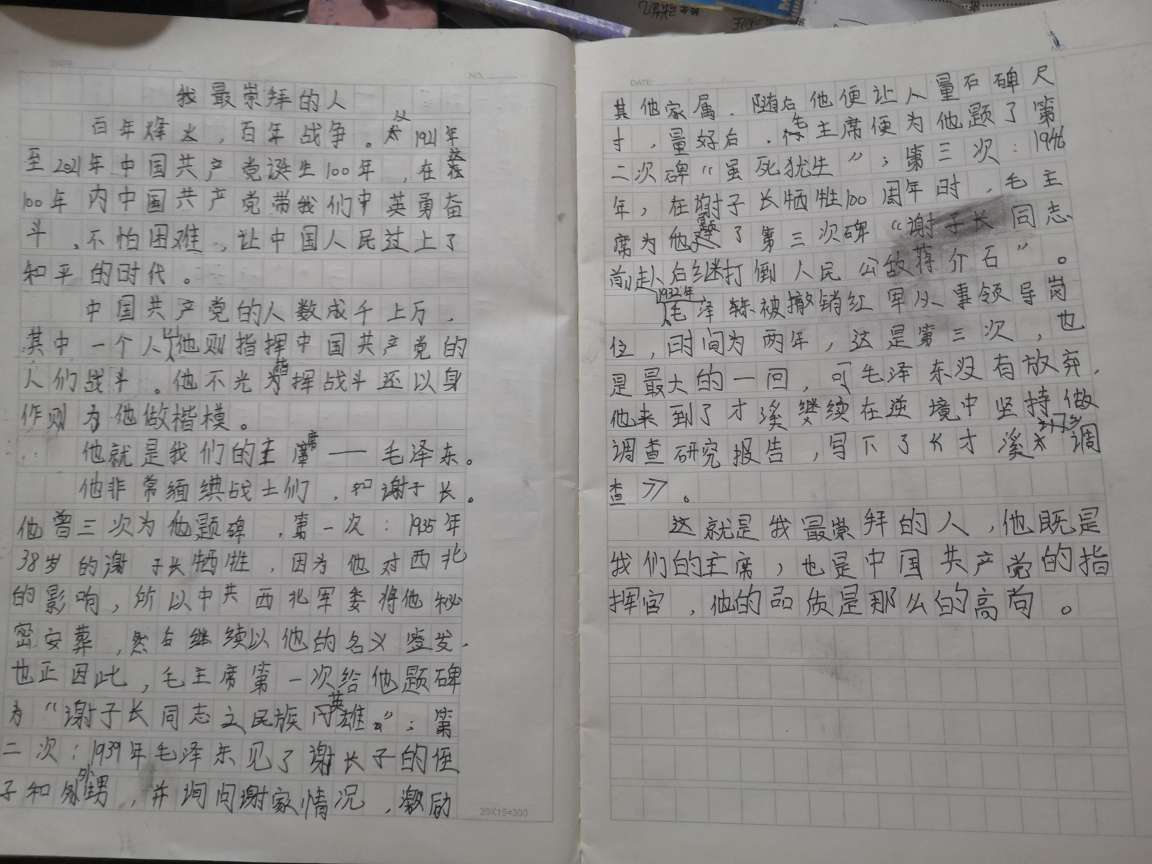 我最崇拜的人
百年烽火，百年战争。从1921年
至2021年中国共产党诞生100年，在这
100年内中国共产党带我们中英勇奋
斗，不怕困难，让中国人民过上了
和平的时代。
中国共产党的人数成千上万，
其中一个人，他则指挥中国共产党的
人们战斗。他不光指挥战斗还以身
作则为他做楷模。
他就是我们的主席——毛泽东。
他非常缅怀战士们，和谢子长。
他曾三次为他题碑，第一次：1935年
38岁的谢子长牺牲，因为他对西北
的影响，所以中共西北军委将他秘
密安葬，然后继续以他的名义签发，
也正因此，毛主席第一次给他题碑
为“谢子长同志之民族英雄”；第
二次：1939年毛泽东见了谢长子的侄
子和外甥，并询问谢家情况，激励
DATE
其他家属．随后他便让人量石碑尺
寸，量好后，毛主席便为他题了第
二次碑“虽死犹生”；第三次：1946
年，在谢子长牺牲100周年时，毛主
席为他题了第三次碑“谢子长同志
前赴后继打倒人民公敌蒋介石”。
1932年毛泽东被撤销红军从事领导岗
位，时间为两年，这是第三次，也
是最大的一回，可毛泽东没有放弃，
他来到了才溪继续在逆境中坚持做
调查研究报告，写下了《才溪乡调
查》。
这就是我最崇拜的人，他既是
我们的主席，也是中国共产党的指
挥官，他的品质是那么的高尚。
NO.
20X15=300